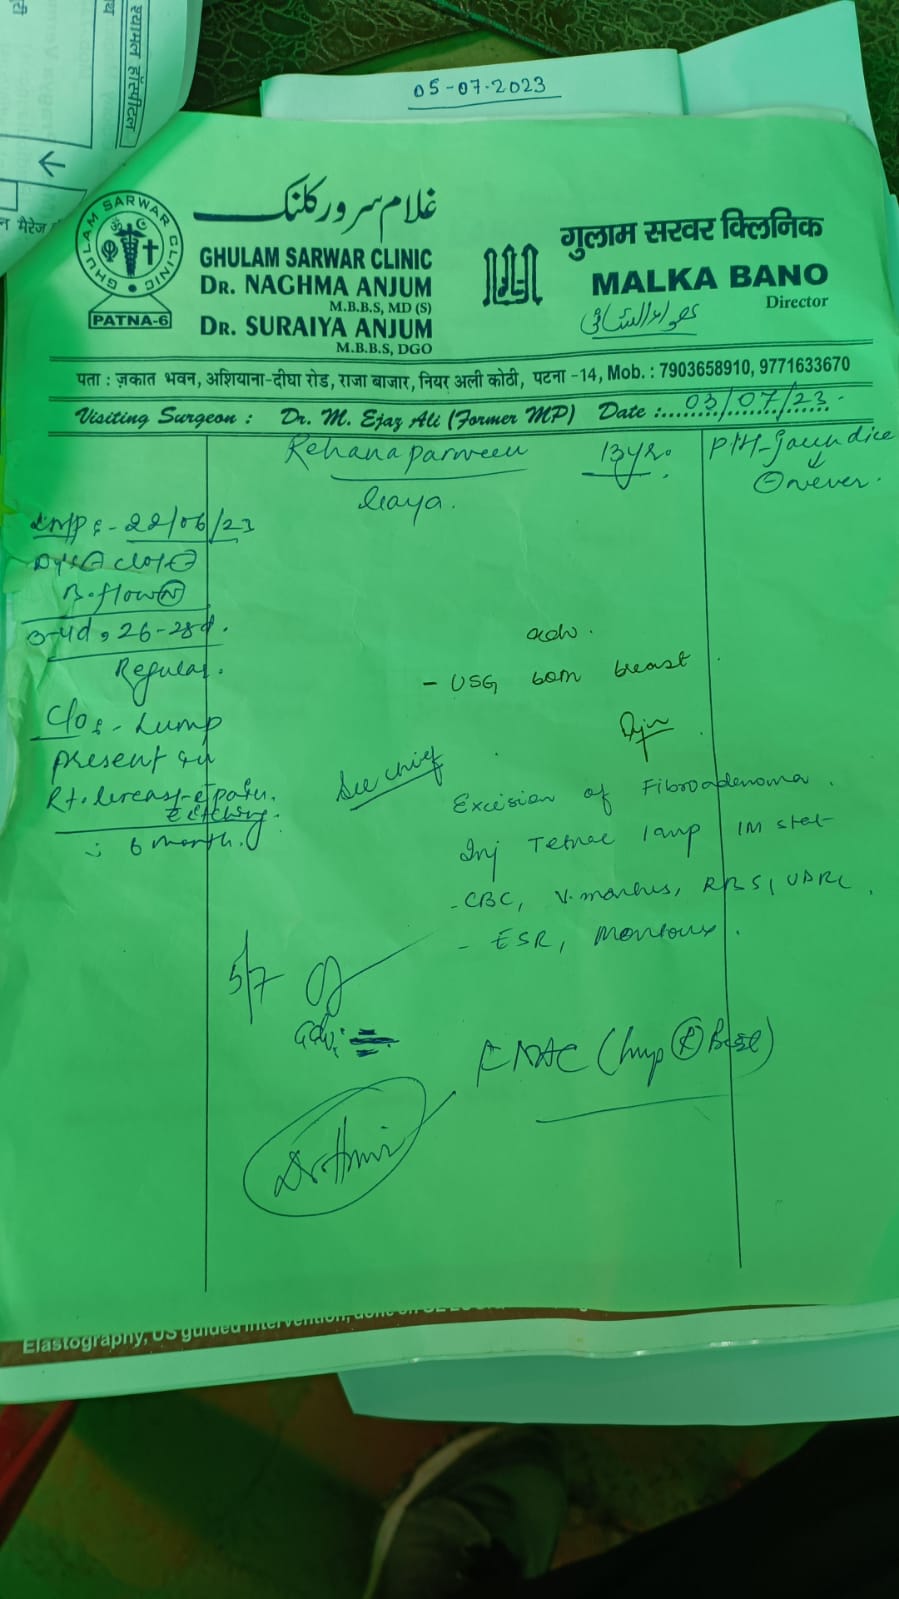 श्यामल हॉस्पीटल
05-07-2023
غلام سرور کلنک
GHULAM SARWAR CLINIC
PATNA-6
GHULAM SARWAR CLINIC
DR. NAGHMA ANJUM
M.B.B.S, MD (S)
DR. SURAIYA ANJUM
M.B.B.S, DGO
गुलाम सरवर क्लिनिक
MALKA BANO
Director
पता : ज़कात भवन, अशियाना-दीघा रोड, राजा बाजार, नियर अली कोठी, पटना -14, Mob. : 7903658910, 9771633670
Visiting Surgeon : Dr. M. Ejaz Ali (Former MP) Date :.....03/07/23
Rehana parween 13yr.
P/H- Jaundice
never.
LMP:- 22/06/23
B.flow N
3-4d, 26-28d.
Regular.
C/o:- Lump
present in
Rt. breast
6 month.
adv.
- USG both breast
See chief
Excision of Fibroadenoma.
Inj Tetvac 1amp IM stat
- CBC, V. markers, RBS, VDRL,
- ESR, Montoux.
5/7
adv:
FNAC (lump R Breast)
Elastography, US guided intervention,